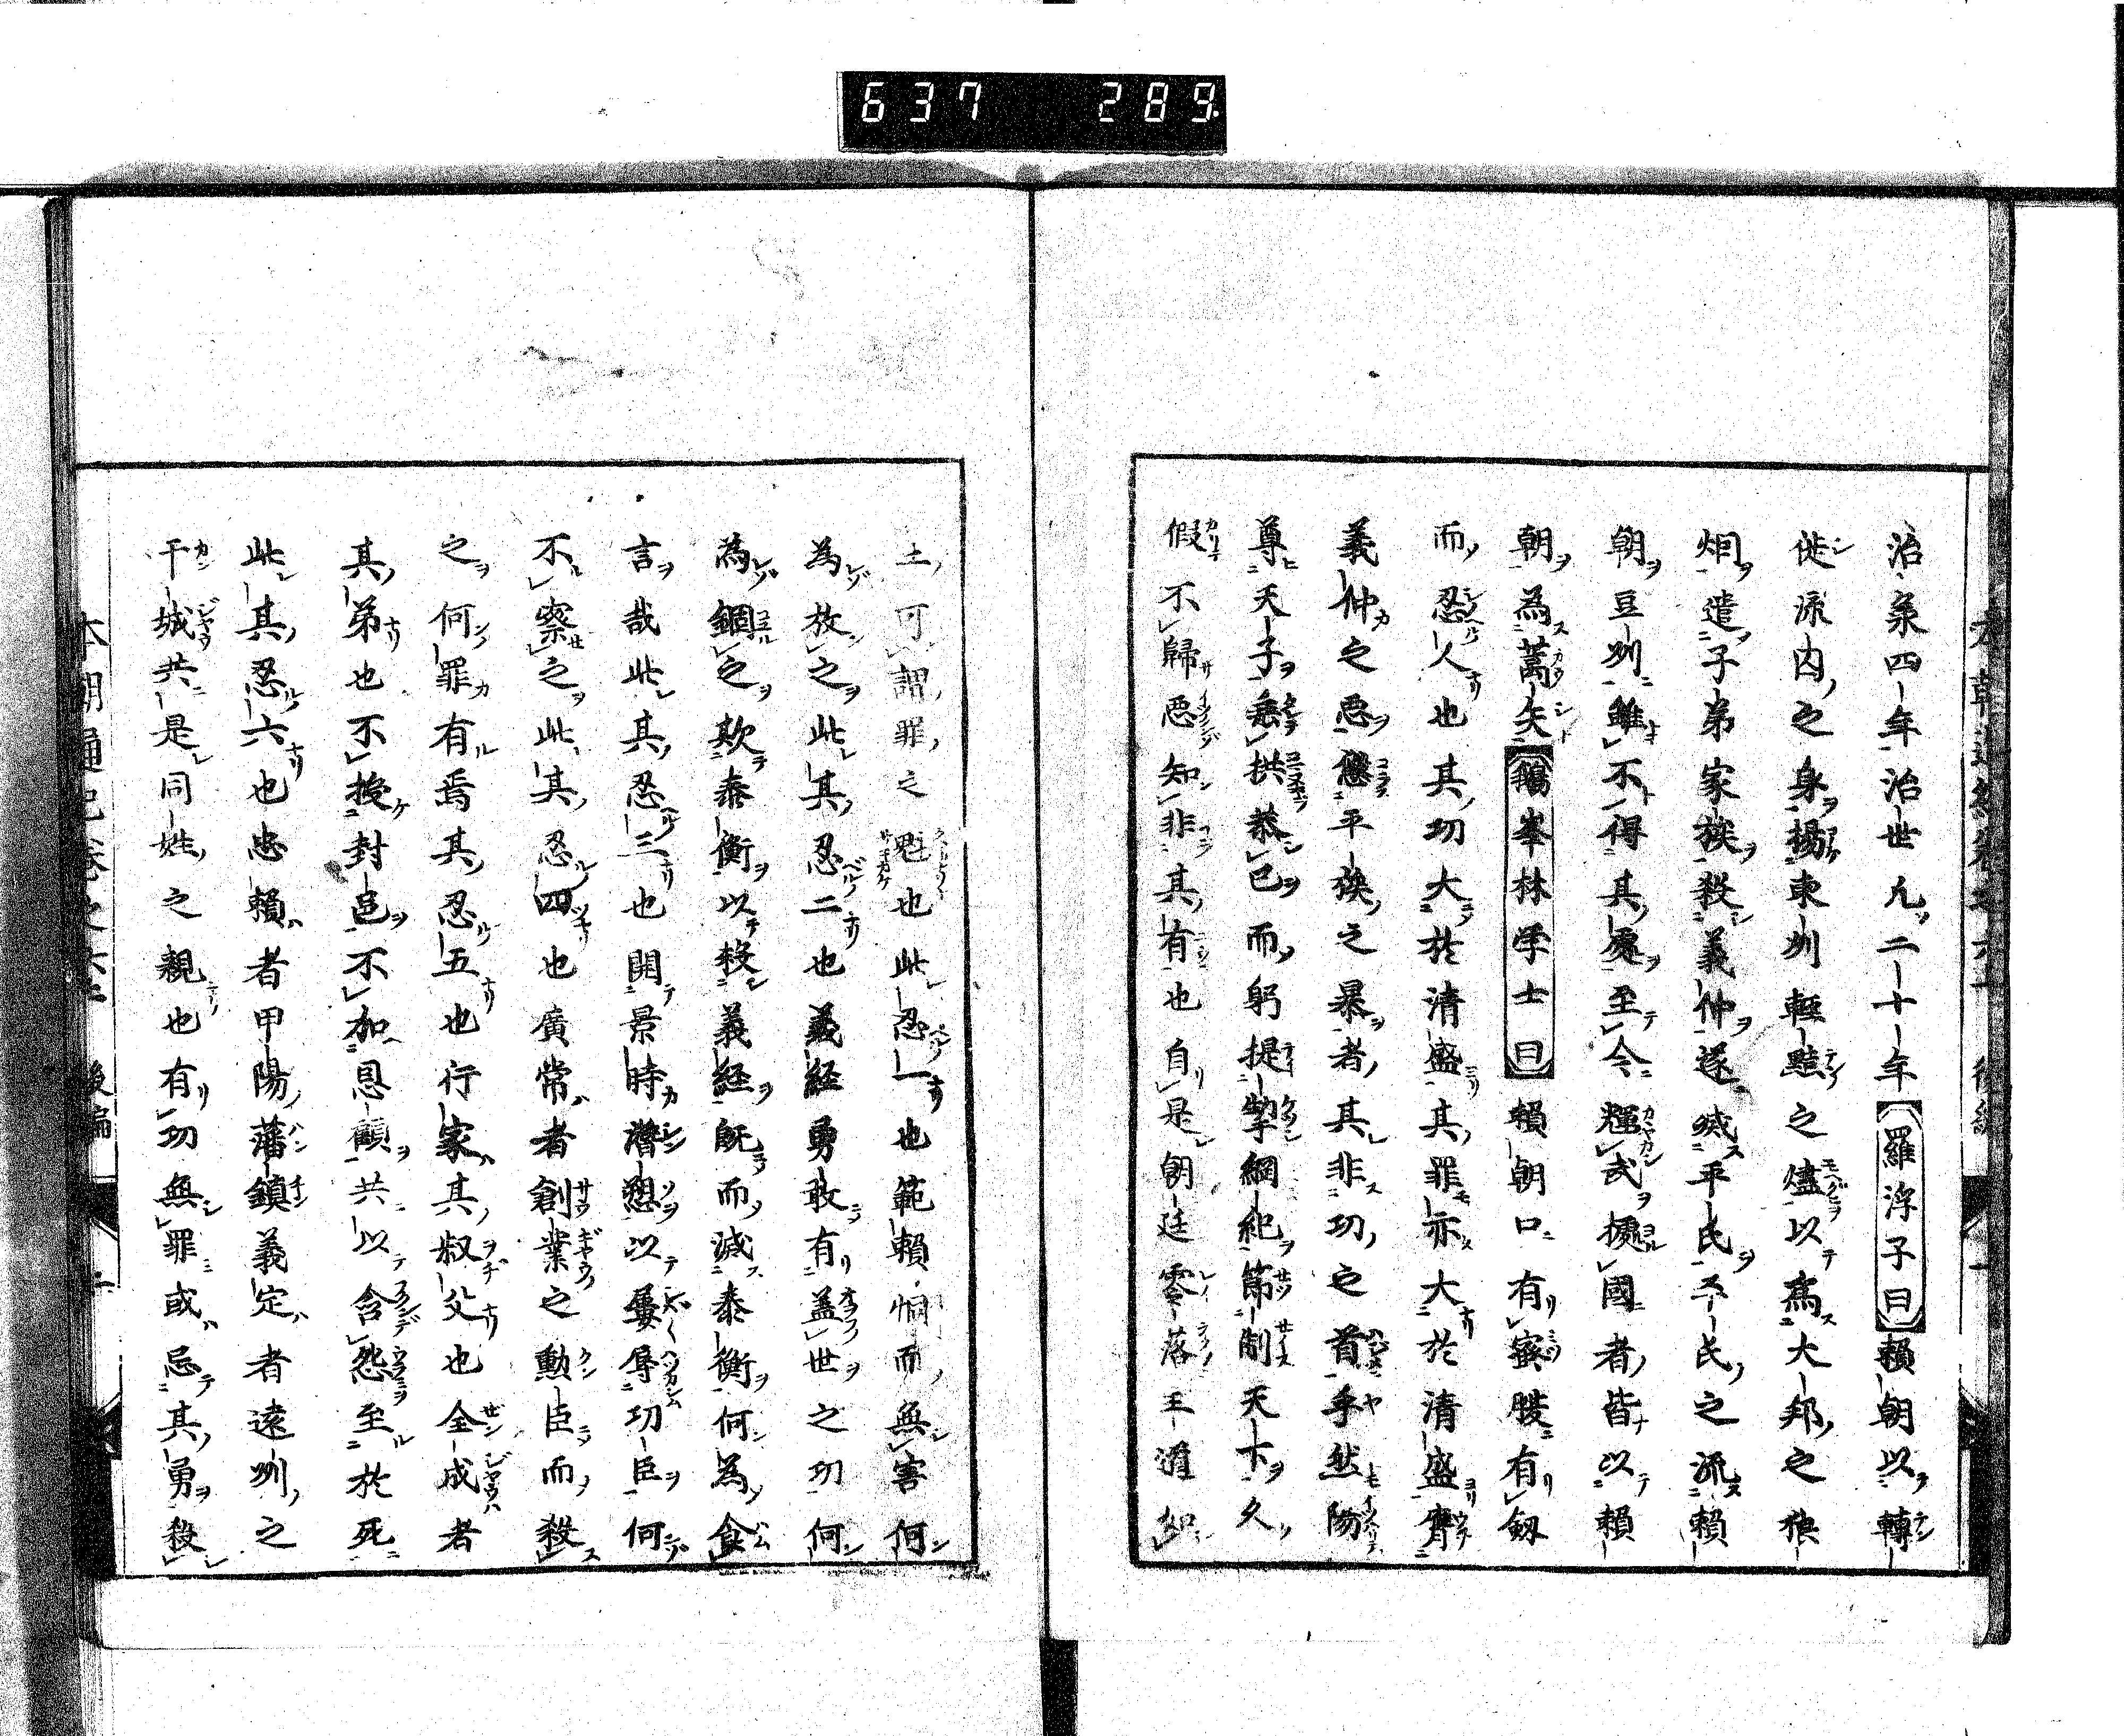 637 289
治承四年治世凡二十年羅浮子曰頼朝以轉
徙流囚之身揚東刕輕黠之儘以為大邦之狼
烟遣子弟家族殺義仲遂滅平氏平氏之流頼
朝豆刕雖不得其處至今輝武擾國者皆以頼
朝為蒿矢鵞峯林学士曰頼朝口有蜜腹有劔
而忍人也其功大於清盛其罪亦大於清盛膺
義仲之悪懲平族之暴者其非功之首乎然陽
尊天子垂拱恭已而躬提挈綱紀節制天下久
假不歸悪知非其有也自是朝廷零落王道如
土可謂罪之魁也此忍一也範頼恫而無害何
為放之此其忍二也義経勇敢有盖世之功何
為錮之欺泰衡以殺義経既而滅泰衡何為食
言哉此其忍三也開景時潜愬以屡辱功臣何
不察之此其忍四也廣常者創業之勲臣而殺
之何罪有焉其忍五也行家其叔父也全成者
其弟也不授封邑不加恩顧共以含怨至於死
此其忍六也忠頼者甲陽藩鎮義定者遠刕之
干城共是同姓之親也有功無罪或忌其勇殺
本朝通紀巻之六上 後編 二